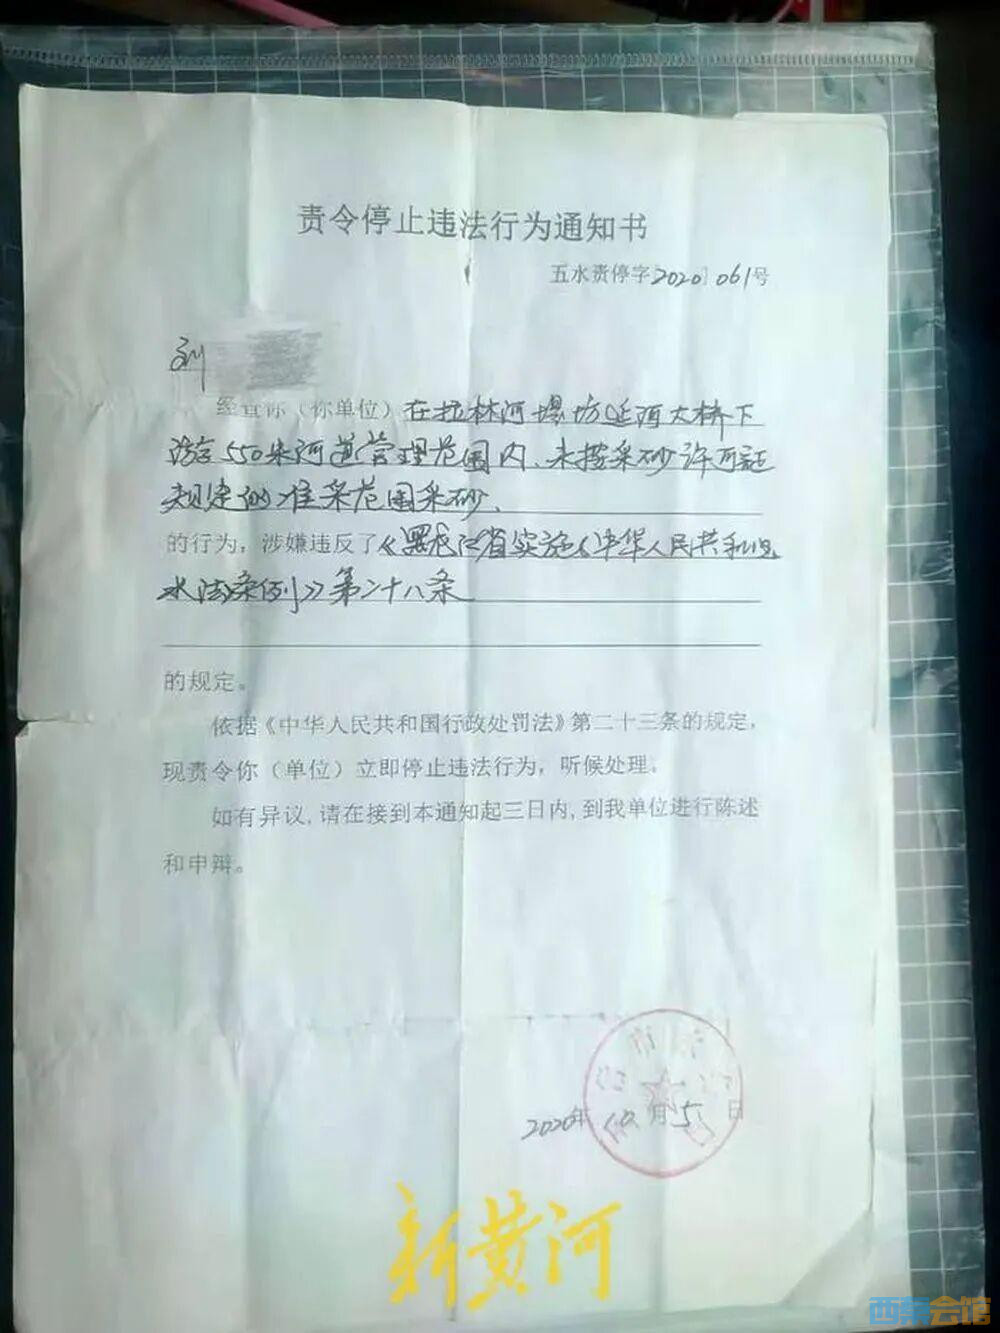 责令停止违法行为通知书
五水责停字[2020]061号
刘
经查你（你单位）在拉林河堤坊延河大桥下
游550米河道管理范围内、未按采砂许可证
规定的准采范围采砂、
的行为，涉嫌违反了《黑龙江省实施《中华人民共和国
水法》条例》第二十八条
的规定。
依据《中华人民共和国行政处罚法》第二十三条的规定，
现责令你（单位）立即停止违法行为，听候处理。
如有异议,请在接到本通知起三日内,到我单位进行陈述
和申辩。
2020年10月5日
新黄河
会馆